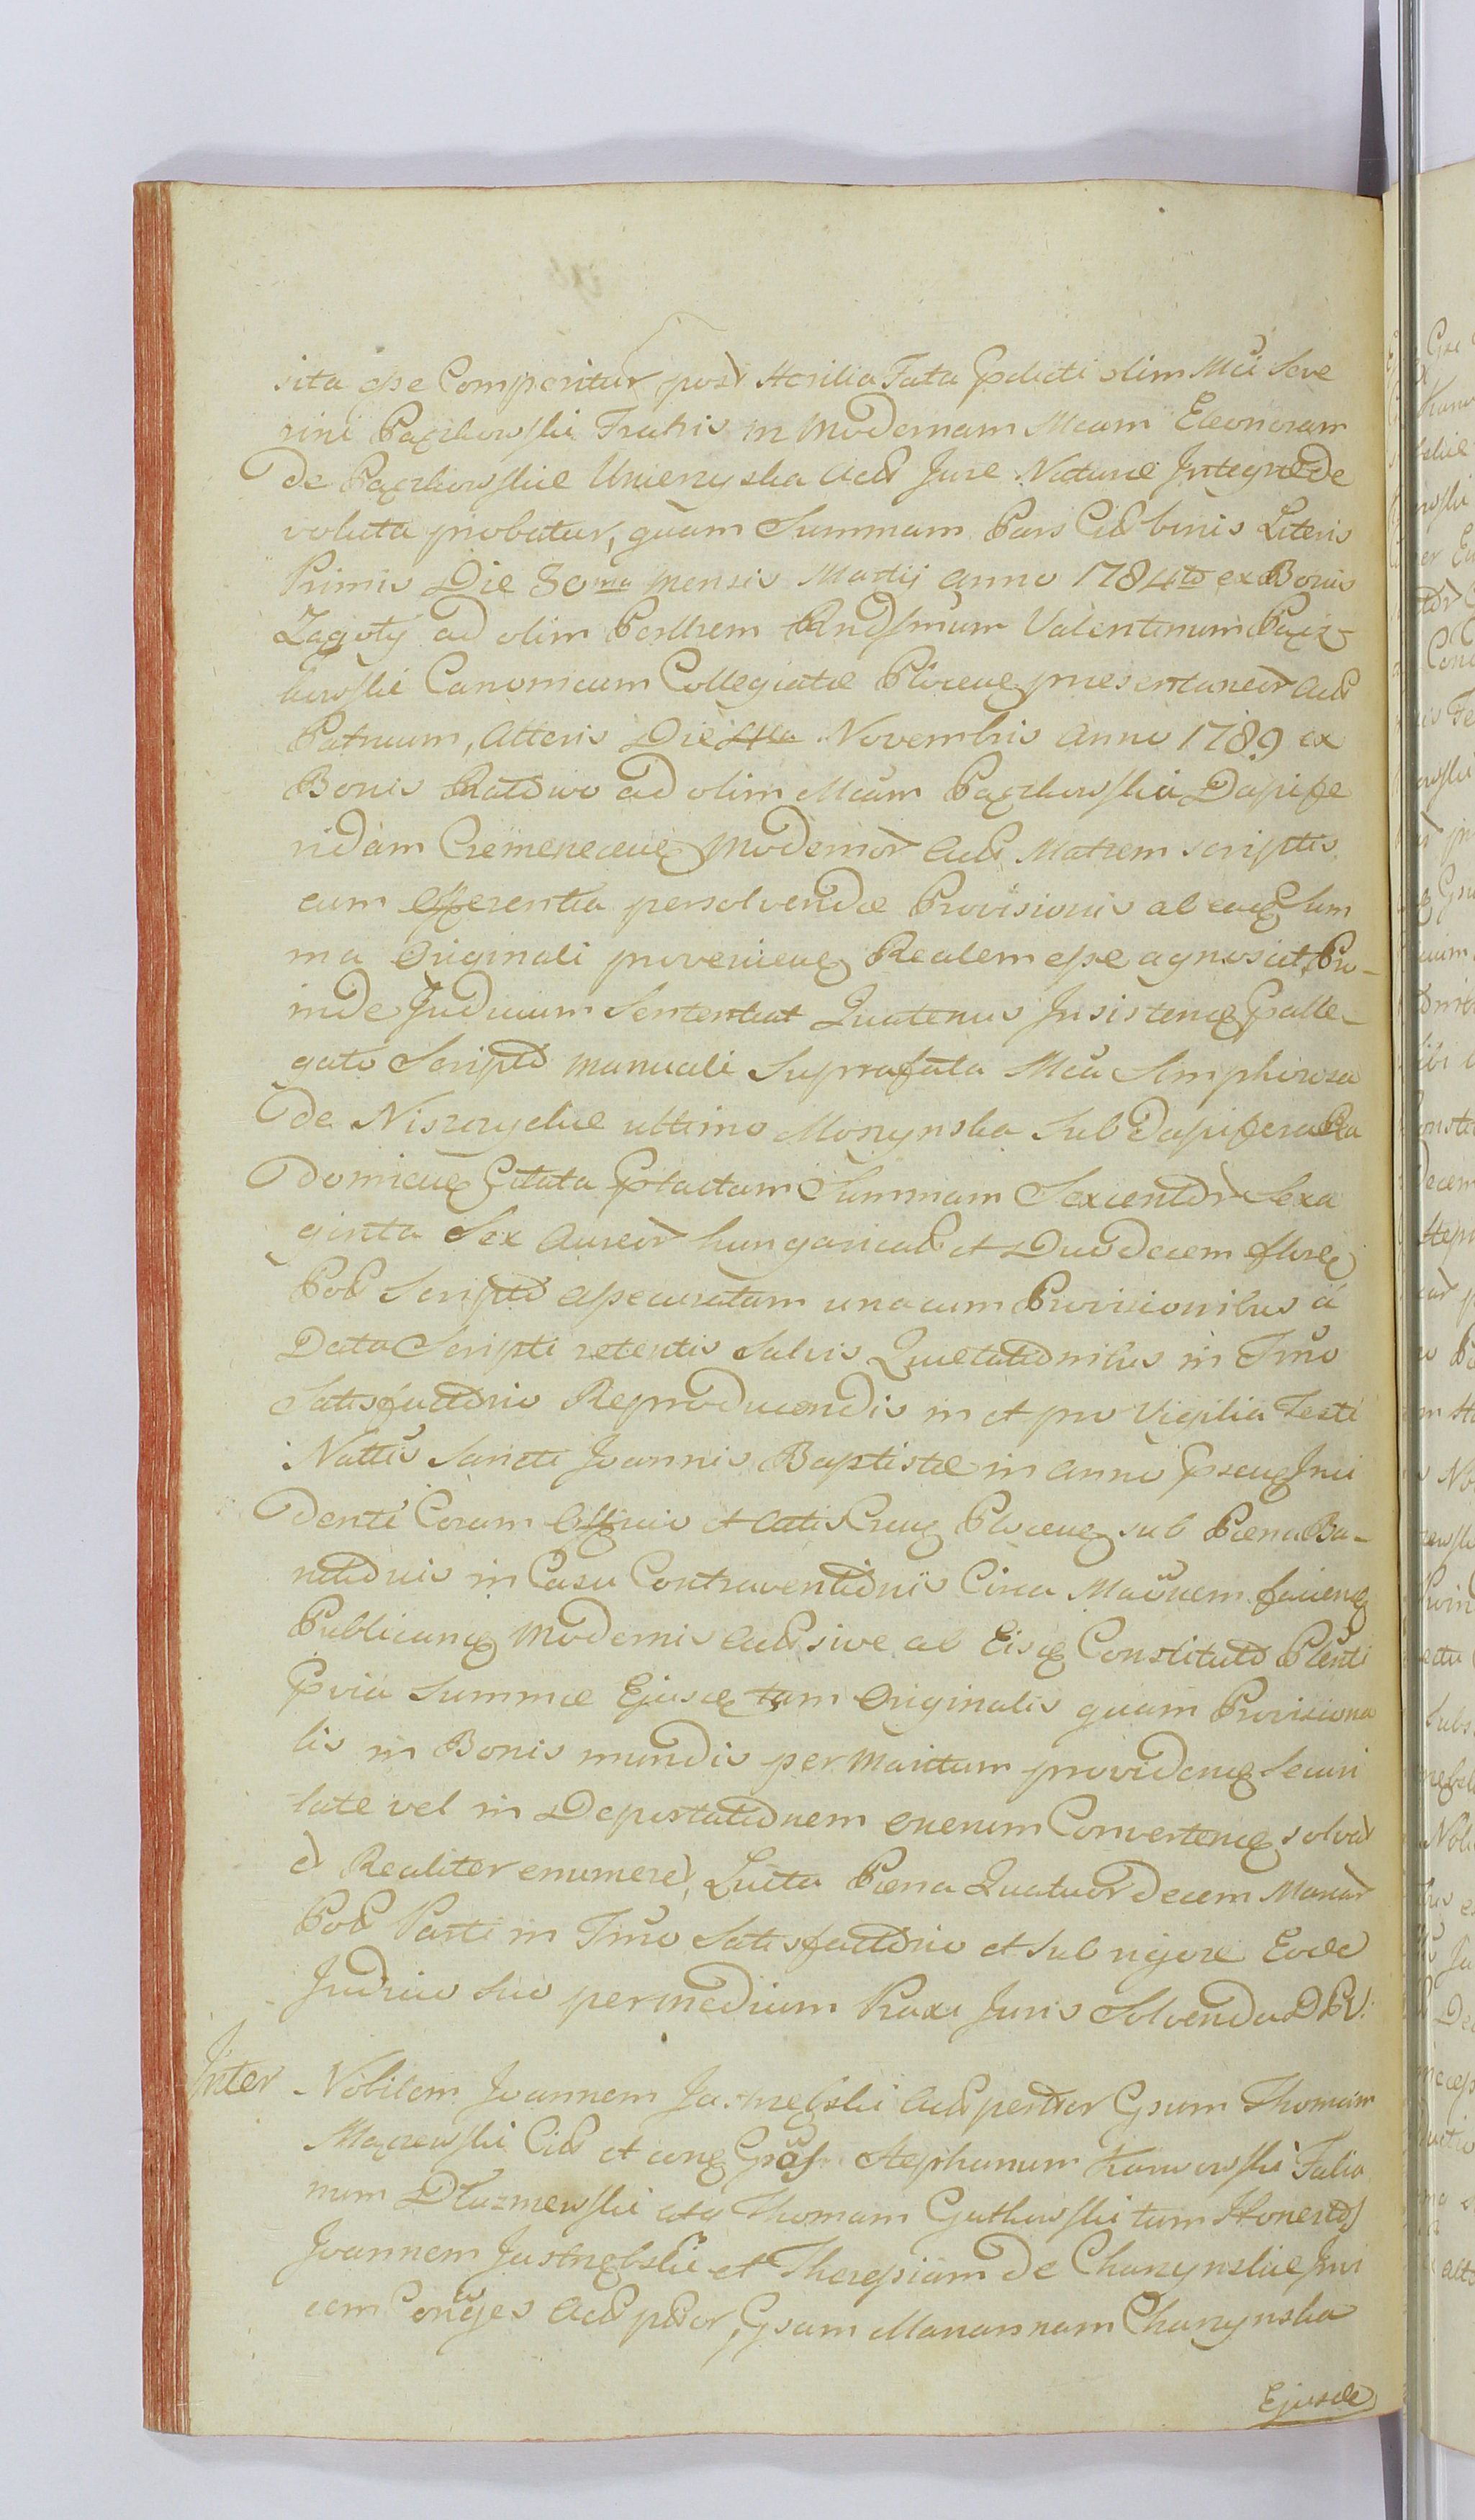 sita esse Comperitur, post Sterilia Fata Pdicti olim Mci Seve
rini Paczkowski Fratris in Modernam Mcam Eleonoram
de Paczkowskie Umienyska Actt Jure Naturæ Integræ de
voluta probatur, quam Summam Pars Citt binis Literis
Primis Die 30ma mensis Martij anno 1784to ex Bonis
Zagoty ad olim Perllrem Rndssmum Valentinum Pacz-
kowski Canonicum Collegiatæ Plocen præsentaneor Actt
Patruum, Alteris Die 4ta Novembris Anno 1789 ex
Bonis Ratowo ad olim Mcam Paczkowska Dapife
ridam Cremenecen Modernor Actt Matrem scriptis
cum offerentia persolvendæ Provisionis ab eadem Sum
ma Originali provenien Realem esse agnoscit, Pro-
inde Judicium Sententiat Quatenus Insistendo Palle-
gato Scripto manuali Suprafata Mca Simphorosa
de Niszczyckie ultimo Mdzynska Sub Dapifera Ra
domien Citata Ptactam Summam Sexcentor Sexa
ginta Sex Aureor hungarical et Duodecem floren
Pol Scripto assecuratam unacum Provisionibus á
Data Scripti retentis Salvis Quietationibus in Tmo
Satisfactorio Reproducendis in et pro Vigilia Festi
Nattis Sancti Joannis Baptistæ in anno Psen Inci
denti Coram Officio et Actis Cren Plocen sub Pœna Ba-
nitionis in Casu Contraventionis Circa Maonem facien
Publican Modernis Actt sive ab Eisd Constituto Plenti
Pvia Summæ Ejusd tam Originalis quam Provisiona
lis in Bonis mundis per Maritum providen Securi
tate vel in Depostationem onerum Converten solvat
et Realiter enumeret, Luita Pœna Quatuordecem Marcar
Pol Parti in Tmo Satisfactorio et sub rigore Eode
Judicio suo per medium Paxi Juris Solvenda DPV.
Inter Nobilem Joannem Jastrzebski Actt per Gsum Thomam
Mazewski Citt et Gsos Stephanum Karwowski Fabia
num Dluzniewski ata Thomam Gutkowski tum Honestos
Joannem Jastrzebski et Theressiam de Charzynskie Invi
cem Conges Actt, Gsam Mariannam Charzynska
Ejusde